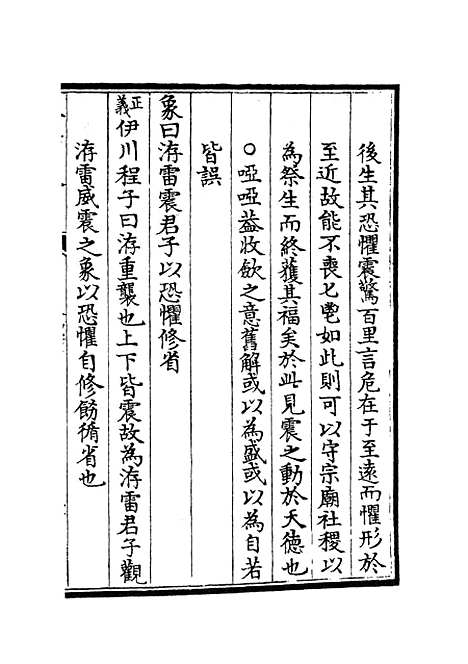 後生其恐懼震驚百里言危在于至遠而懼形於
至近故能不喪匕鬯如此則可以守宗廟社稷以
為祭主而終獲其福矣於此見震之動於天德也
○啞啞益收斂之意舊解或以為盛或以為自若
皆誤
象曰洊雷震君子以恐懼修省
正義伊川程子曰洊重襲也上下皆震故為洊雷君子觀
洊雷威震之象以恐懼自修飭循省也